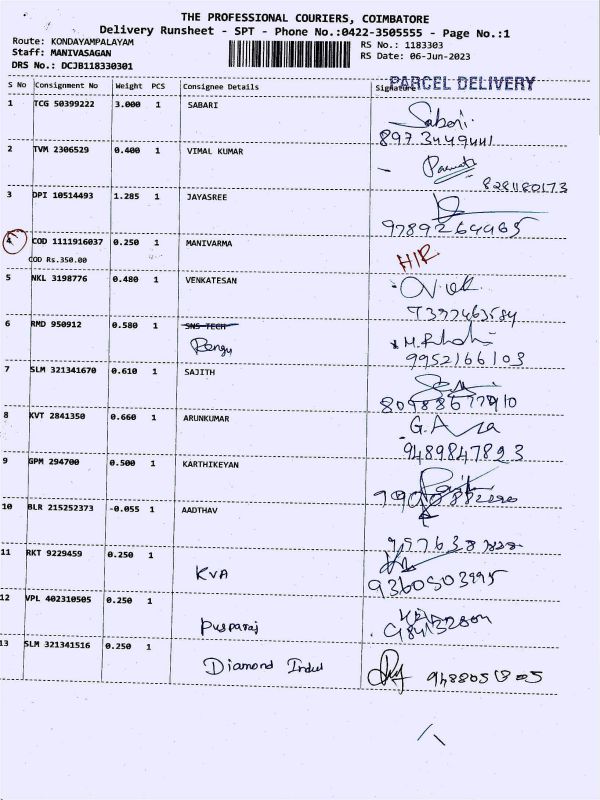 THE PROFESSIONAL COURIERS, COIMBATORE
Delivery Runsheet - SPT - Phone No.:0422-3505555 - Page No.:1
Route: KONDAYAMPALAYAM
Staff: MANIVASAGAN
DRS No.: DCJB118330301
RS No.: 1183303
RS Date: 06-Jun-2023
PARCEL DELIVERY
S No Consignment No Weight PCS Consignee Details Signature
1 TCG 50399222 3.000 1 SABARI Sabari
897 3449441
2 TVM 2306529 0.400 1 VIMAL KUMAR
8281180173
3 DPI 10514493 1.285 1 JAYASREE
9789264965
4 COD 1111916037 0.250 1 MANIVARMA H/R
COD Rs.350.00
5 NKL 3198776 0.480 1 VENKATESAN
6 RMD 950912 0.580 1 SNS TECH
9952166103
7 SLM 321341670 0.610 1 SAJITH
8 KVT 2841350 0.660 1 ARUNKUMAR
9489847823
9 GPM 294700 0.500 1 KARTHIKEYAN
10 BLR 215252373 -0.055 1 AADTHAV
11 RKT 9229459 0.250 1 KVA
9360503995
12 VPL 402310505 0.250 1 Pusparaj
13 SLM 321341516 0.250 1 Diamond Indul